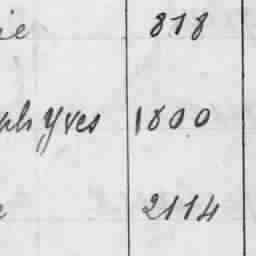 ie 818
ph Yves 1800
e 2114